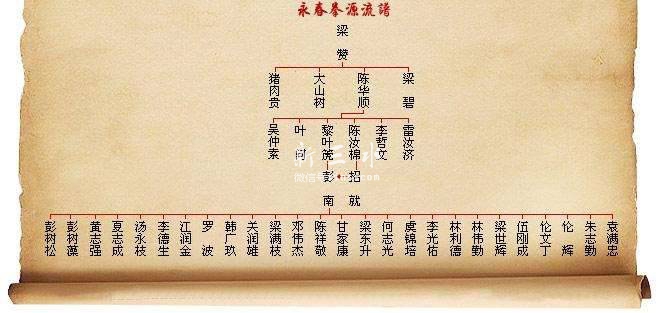 永春拳源流譜
梁赞
猪肉贵
大山树
陈华顺
梁碧
吴仲素
叶问
黎叶篪
陈汝棉
李哲文
雷汝济
彭南
招就
彭树松
彭树藻
黄志强
夏志成
汤永枝
李德生
江润金
罗波
韩广玖
关润雄
梁满枝
邓伟杰
陈祥敬
甘家康
梁东升
何志光
虞锦培
李光佑
林利德
林伟勤
梁世辉
伍刚成
伦文丁
伦辉
朱志勤
袁满忠